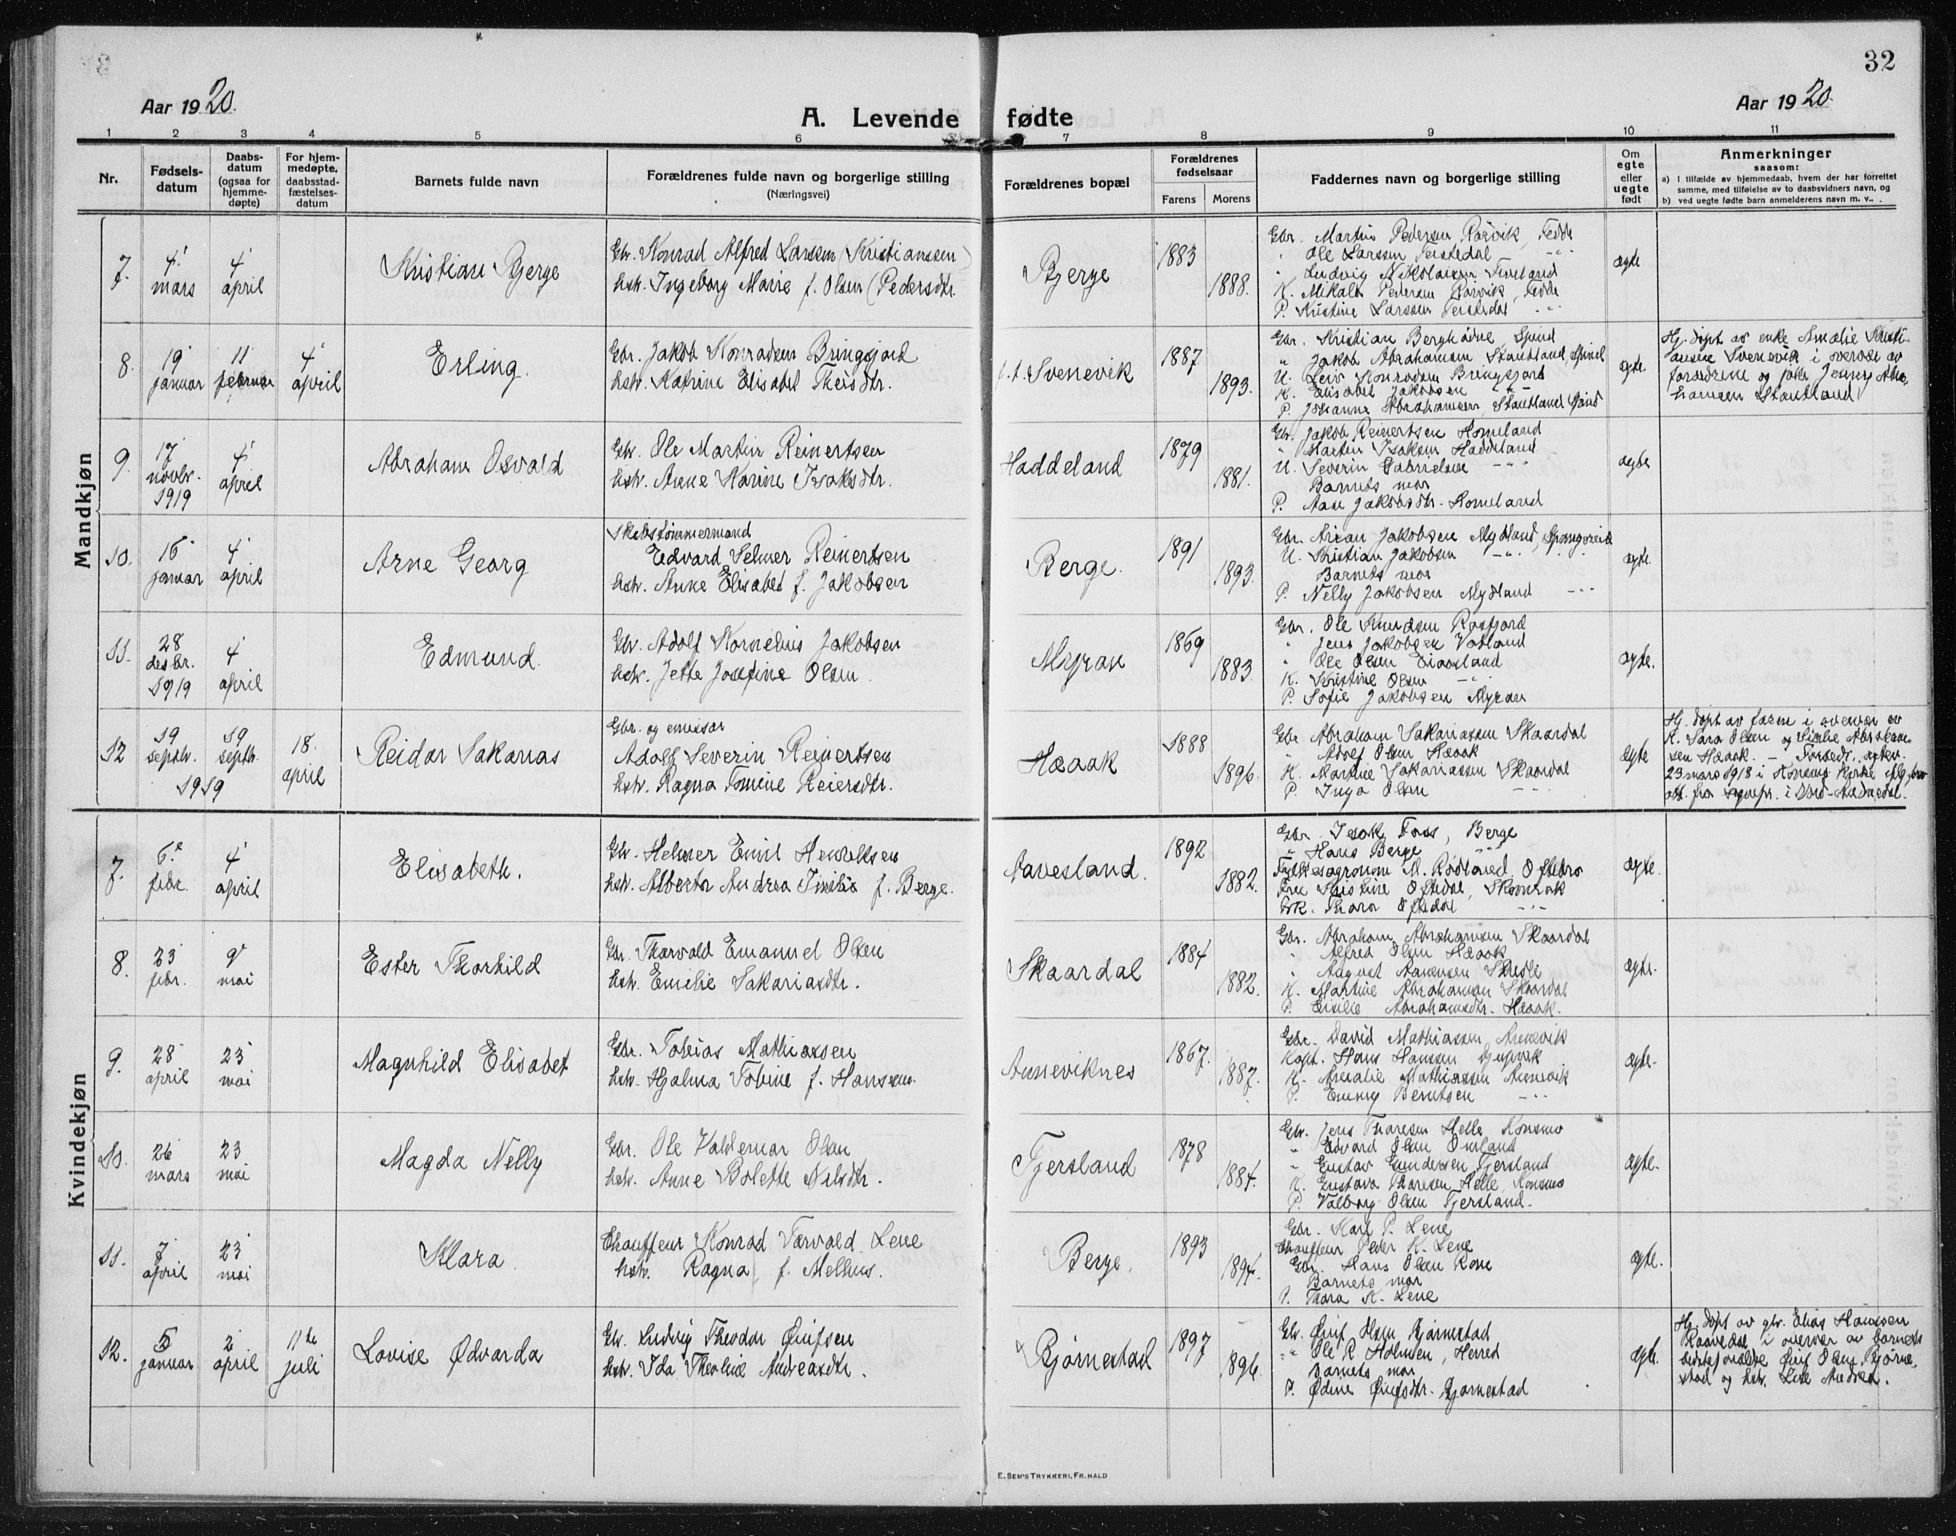 32
Aar 1920.
A. Levende fødte
Aar 1920.
1 2 3 4 5 6 7 8 9 10 11
Nr.
Fødsels-
datum
Daabs-
datum
(ogsaa for
hjemme-
døpte)
For hjem-
medøpte,
daabsstad-
fæstelses-
datum
Barnets fulde navn
Forældrenes fulde navn og borgerlige stilling
(Næringsvei)
Forældrenes bopæl
Forældrenes
fødselsaar
Farens Morens
Faddernes navn og borgerlige stilling
Om
egte
eller
uegte
født
Anmerkninger
saasom:
a) I tilfælde av hjemmedaab, hvem der har forrettet
samme, med tilføielse av to daabsvidners navn, og
b) ved uegte fødte barn anmelderens navn m. v.
Mandkjøn
7. 4 mars
4 april
Kristian Bjerge
Gbr. Konrad Alfred Larssen (Kristiansen)
hstr. Ingeborg Marie f. Olsen (Pedersdtr.
Bjerge
1883
1888.
Gbr. Martin Pedersen Rørvik, Fedde
" Ole Larssen Teistedal " "
" Ludvig Nikolaisen
K. Mikale Pedersen Rørvik, Fedde
P. Kristine Larssen Teistedal " "
ægte
8. 19 januar
11 februar
4 april
Erling.
Gbr. Jakob Konradsen Bringsjord
hstr. Katrine Elisabet Theisdtr.
p.t. Svenevik
1887
1893.
Gbr. Kristian Berghødne Spind
" Jakob Abrahamsen Stautland, Spind
U. Leiv Konradsen Bringsjord
K. Elisabet Jakobsen "
P. Josianne Abrahamsen, Stautland Spind
ægte
Hj. døpt av enke Amalie Kristi-
ansen Svenevik i overvær av
forældrene og Jenny Abra-
hamsen Stautland
9. 17 novbr. 1919
4 april
Abraham Osvald
Gbr. Ole Martin Reinertsen
hstr. Anne Karine Isaksdtr.
Haddeland
1879
1881.
Gbr. Jakob Reinertsen Homeland
" Martin Isaksen Haddeland
U. Severin Gabrielsen " "
Barnets mor
P. Aase Jakobsdtr. Homeland
ægte
10. 15 januar
4 april
Arne Georg
Skibstømmermand
Edvard Selmer Reinertsen
hstr. Anne Elisabet f. Jakobsen
Berge.
1891
1893.
Gbr. Jakobsen Mydland, Spangereid
U. Kristian Jakobsen " "
Barnets mor
P. Nelly Jakobsen Mydland " "
ægte.
11. 28 desbr. 1919
4 april
Edmund.
Gbr. Adolf Kornelius Jakobsen
hstr. Jette Josefine Olsen.
Myran
1869
1883.
Gbr. Ole Knudsen Rosfjord
" Jens Jakobsen Vatland
" Ole Olsen
K. Kristine Olsen "
P. Sofie Jakobsen Myran
ægte.
12 19 septbr. 1919
19 septbr.
18. april
Reidar Sakarias
Gbr. og emissær
Adolf Severin Reinertsen
hstr. Ragna Tomine Reiersdtr.
Haaak
1888
1896.
Gbr Abraham Sakariassen Skaardal
" Adolf Olsen Haaak
K. Martine Sakariassen Skaardal
P. Inga Olsen " "
ægte
Hj. døpt av faren i overvær av
K. Sara Olsen og Abraham-
sen Haaak. — Forældr. egtev.
23 mars 1918 i Konsmo kirke
att. fra sognepr. i Nord-Audnedal.
Kvindekjøn
7. 6. febr.
4 april
Elisabeth.
Gbr. Helmer Emil Henriksen
hstr. Alberta Andrea f. Berge.
Aavesland.
1892
1882.
Gbr. Isak Foss, Berge
" Hans Berge "
Fylkesagronom M. Rødland, Oftebro
Fru Kristine Oftedal, Skomrak
Frk. Thora Oftedal "
ægte.
8. 23 febr.
9 mai
Ester Thorhild
Gbr. Thorvald Emanuel Olsen
hstr. Emelie Sakariasdtr.
Skaardal
1884
1882.
Gbr. Abraham Abrahamsen Skaardal
" Alfred Olsen Haaak
" August Aanensen Skeie
K. Martine Abrahamsen Skaardal
P. Abrahamsdtr. Haaak.
ægte.
9. 28 april
23 mai
Magnhild Elisabet
Gbr. Tobias Mathiassen
hstr. Hjalma Tobine f. Hanssen.
Anneviknes
1867.
1887.
Gbr. David Mathiassen, Annevik
Kapt. Hans Hanssen
K. Amalie Mathiassen Annevik
P. Emmy Berntsen "
ægte.
10. 26 mars
23 mai
Magda Nelly
Gbr. Ole Valdemar Olsen
hstr. Anne Bolette Nilsdtr.
Tjersland
1878
1884.
Gbr. Jens Thoresen Helle, Konsmo
" Edvard Olsen Omland
" Gustav Gundersen Tjersland
K. Gustava Thoresen Helle, Konsmo
P. Valborg Olsen Tjersland.
ægte.
11. 7 april
23 mai
Klara.
Chauffeur Konrad Torvald Lene
hstr. Ragna f. Melhus.
Berge.
1893
1894.
Gbr. Karl P. Lene
Chauffeur Peder K. Lene
Gbr. Hans Olsen Rone
Barnets mor
P. Thora K. Lene
ægte.
12. 5 januar
2 april
11te juli
Lovise Ødvarda
Gbr. Ludvig Theodor Øuifsen
hstr. Ida Theoline Andreasdtr.
Bjørnestad
1897
1896.
Gbr. Olsen Bjørnestad
" Ole R. Holmen, Herred
Barnets mor
P. Ødine Bjørnestad
ægte.
Hj. døpt av gbr. Elias Hanssen
i overvær av barnets
bedsteforældre Olsen Bjørne-
stad og hstr. Lise Andrea.
E. SEM'S TRYKKERI, FR.HALD